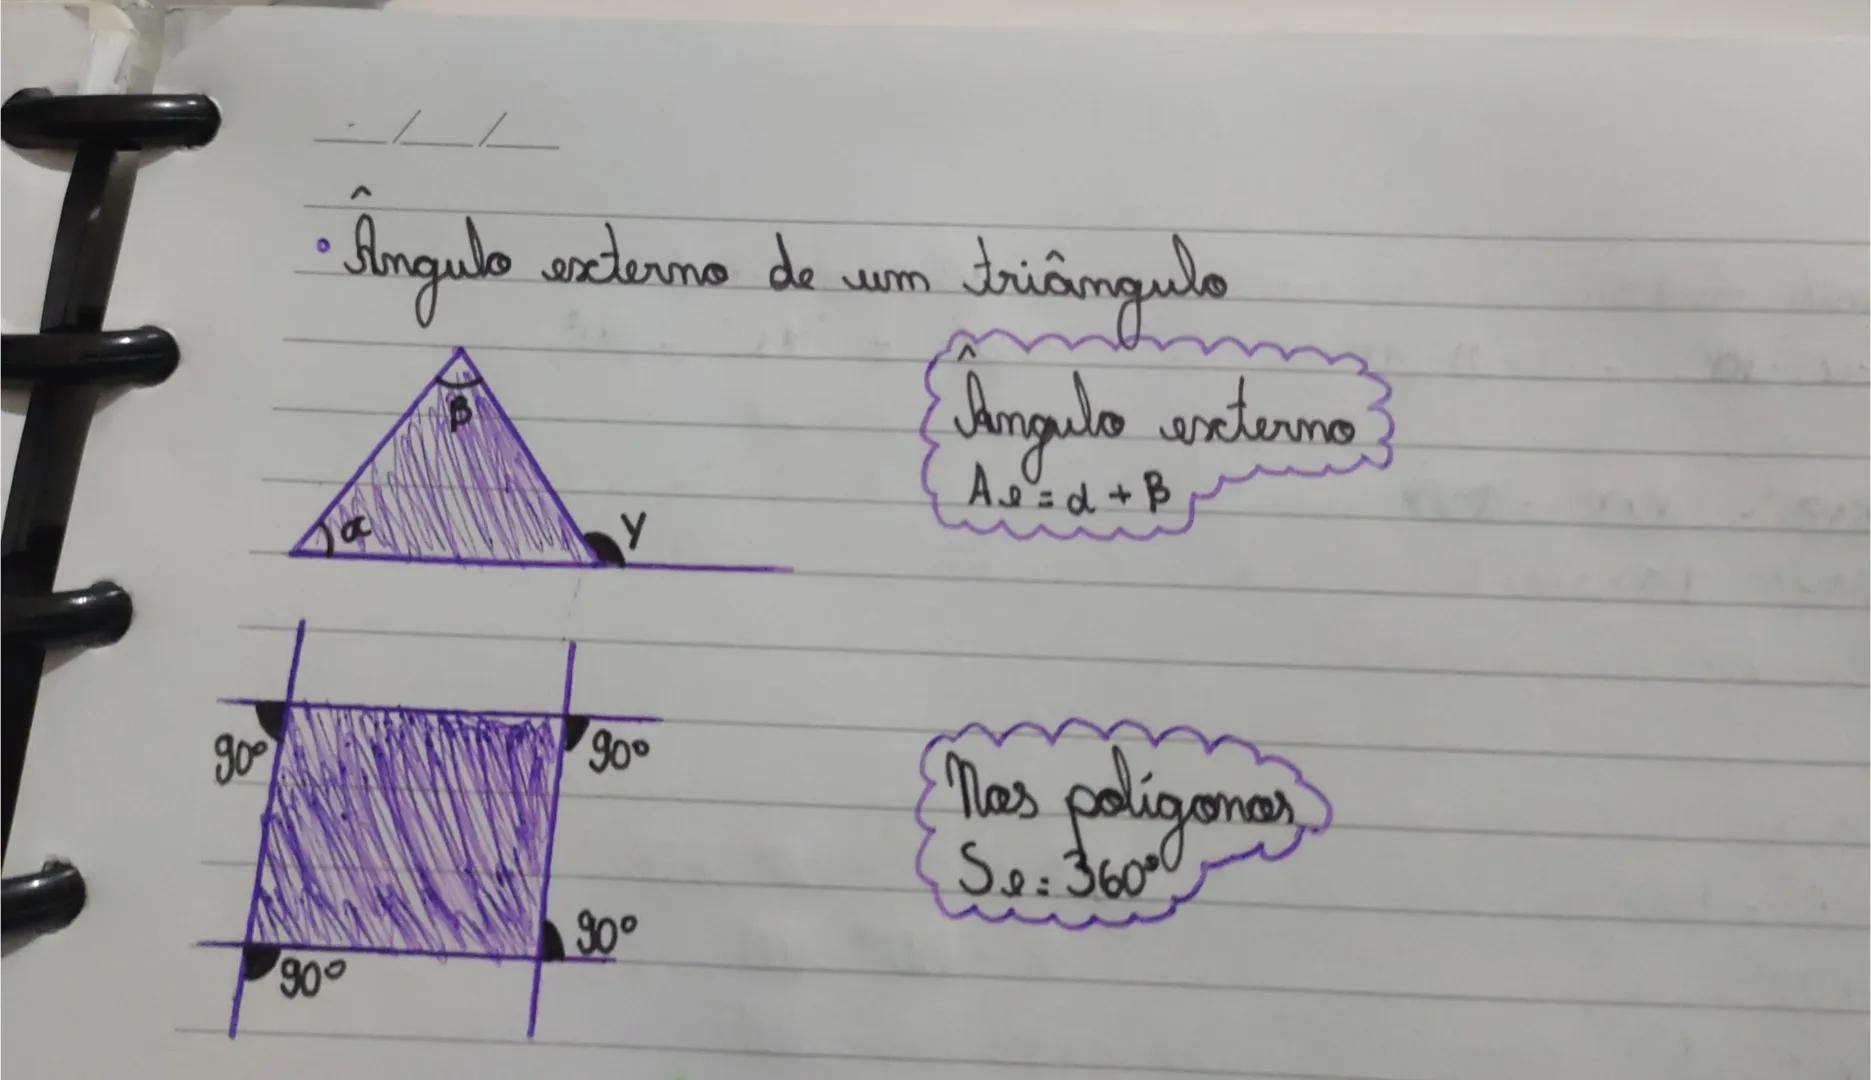 • Ângulo externo de um triângulo
β
α
γ
Ângulo externo
Ae = α + β
90°
90°
90°
90°
Nos polígonos
Se = 360°